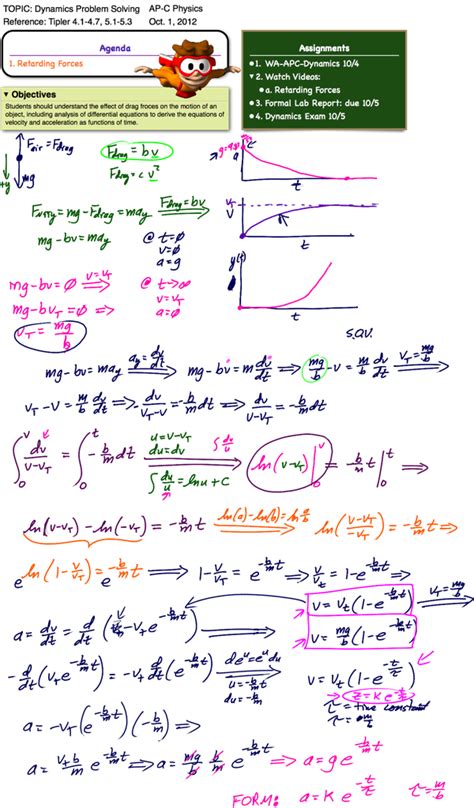 TOPIC: Dynamics Problem Solving AP-C Physics
Reference: Tipler 4.1-4.7, 5.1-5.3 Oct. 1, 2012
Agenda
1. Retarding Forces
Assignments
1. WA-APC-Dynamics 10/4
2. Watch Videos:
a. Retarding Forces
3. Formal Lab Report: due 10/5
4. Dynamics Exam 10/5
Objectives
Students should understand the effect of drag froces on the motion of an
object, including analysis of differential equations to derive the equations of
velocity and acceleration as functions of time.
F_air = F_drag
F_drag = bv
F_drag = cv²
+y
mg
a
t
F_NETy = mg - F_drag = ma_y F_drag = bv ⟹
mg - bv = ma_y @ t=∅
v=∅
a=g
V_T
V
t
mg - bv = ∅ v=v_T ⟹ @ t→∞
v=v_T
a=∅
mg - bv_T = ∅ ⟹
v_T = mg/b
y(t)
t
S.O.V.
mg - bv = ma_y a_y = dv/dt ⟹ mg - bv = m dv/dt ⟹ mg/b - v = m/b dv/dt v_T = mg/b ⟹
v_T - v = m/b dv/dt ⟹ - dv/(v_T - v) = -b/m dt ⟹ dv/(v - v_T) = -b/m dt
∫₀^v dv/(v-v_T) = ∫₀^t -b/m dt u = v-v_T du = dv ∫ du/u = ln u + C ⟹ ln(v-v_T)|₀^v = -b/m t|₀^t ⟹
∫ du/u
ln(v-v_T) - ln(-v_T) = -b/m t ln(a) - ln(b) = ln a/b ⟹ ln((v-v_T)/-v_T) = -b/m t ⟹
e^ln(1 - v/v_T) = e^(-b/m t) ⟹ 1 - v/v_T = e^(-b/m t) ⟹ v/v_t = 1 - e^(-b/m t) ⟹
v = v_t(1 - e^(-b/m t)) v_T = mg/b ⟹
v = mg/b (1 - e^(-b/m t))
-d/dt(v_t e^(-b/m t)) = -v_t d/dt(e^(-b/m t)) de^u = e^u du ⟹
u = -b/m t
du = -b/m dt
v = v_t(1 - e^(-t/τ))
z = k e^(-t/τ)
τ = time constant
a = -v_T(e^(-b/m t))(-b/m) ⟹
a = v_t b/m e^(-b/m t) ⟹ a = mg/b b/m e^(-b/m t) ⟹ a = g e^(-b/m t)
FORM: a = k e^(-t/τ) τ = m/b